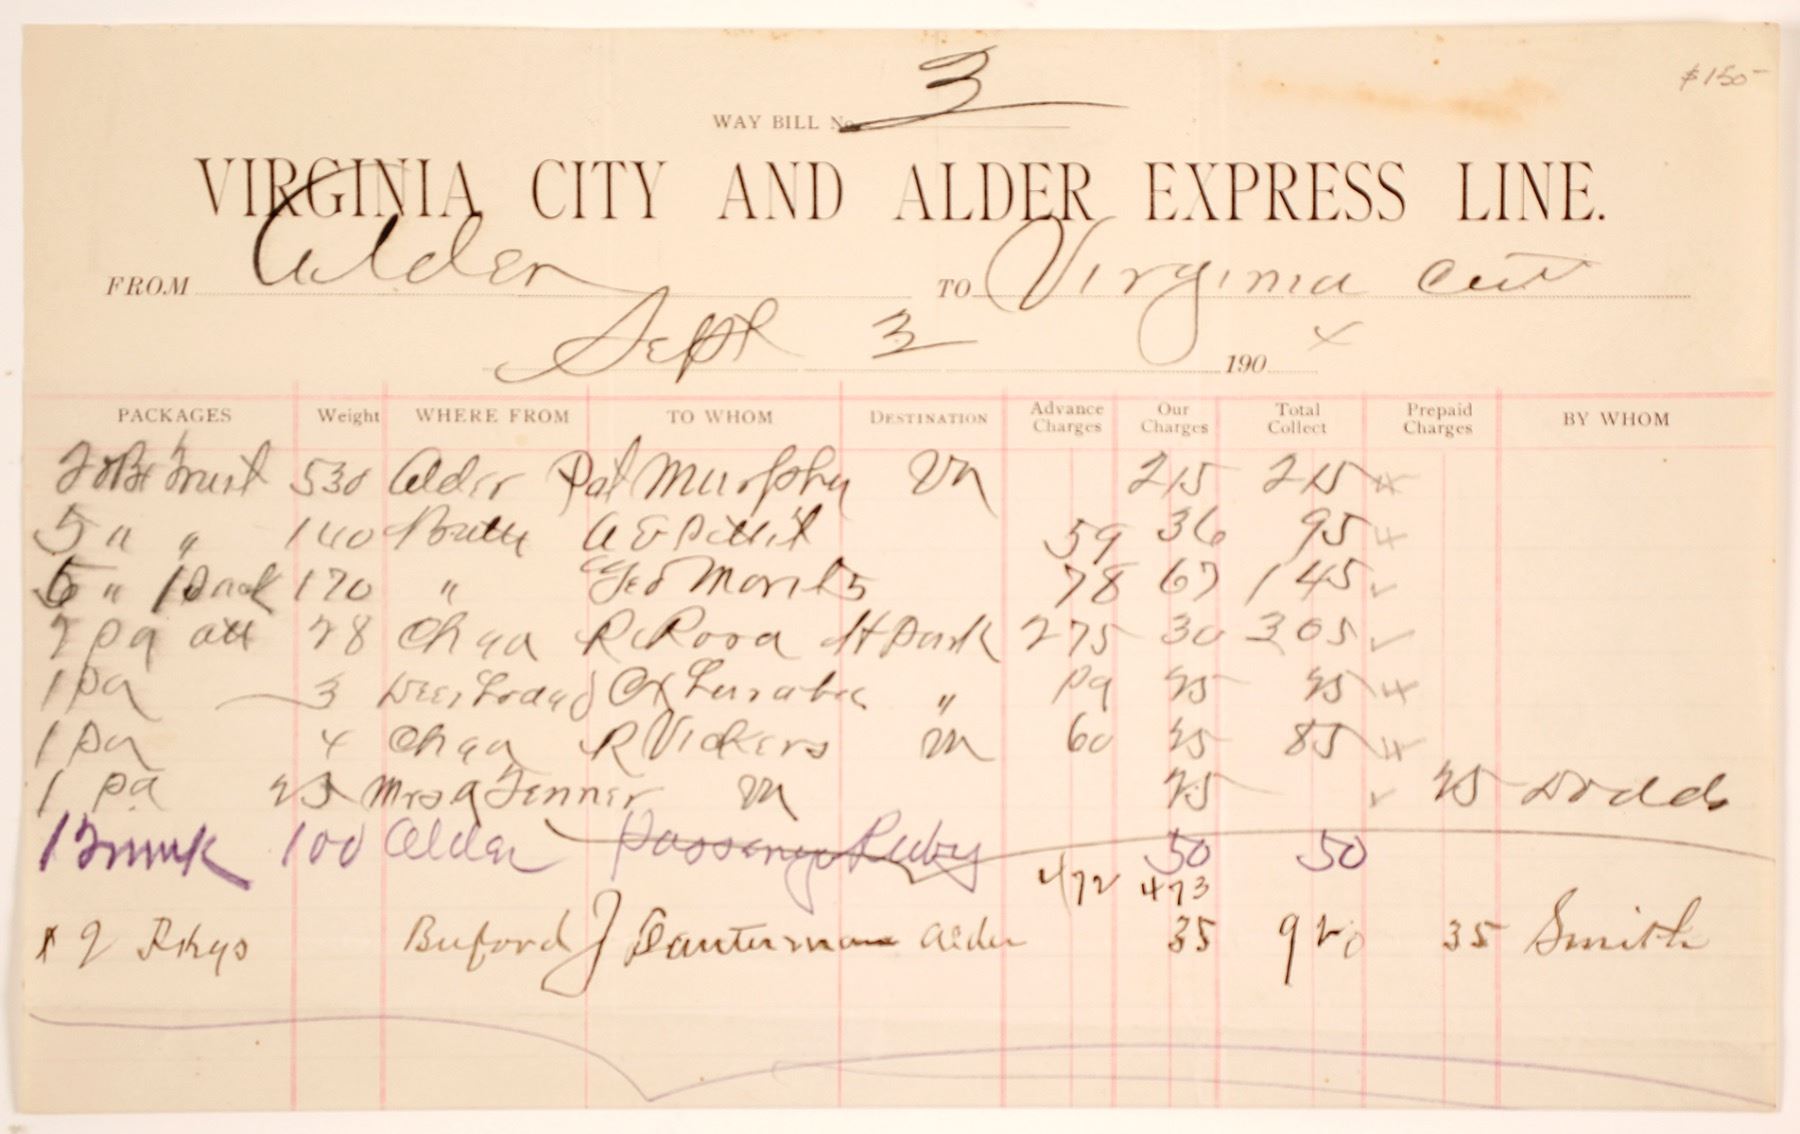 $150-
WAY BILL No. 3
VIRGINIA CITY AND ALDER EXPRESS LINE.
FROM Alder TO Virginia
Sept 3 190 4
PACKAGES Weight WHERE FROM TO WHOM DESTINATION Advance Charges Our Charges Total Collect Prepaid Charges BY WHOM
530 Alder Pat Murphy Va 215 215
5 " " 140 Butte 59 36 95
6 " 1 170 " Geo 78 67 145
2 pa 28 R Rossa 275 30 305
1 pa 3 " pa 25 25
1 pa 4 R Vickers Va 60 25 85
1 pa 25 Mrs A Jenner Va 25 25 Dodds
1 Trunk 100 Alder Passenger Ruby 50 50
472 473
2 Pkgs Buford J Alder 35 920 35 Smith